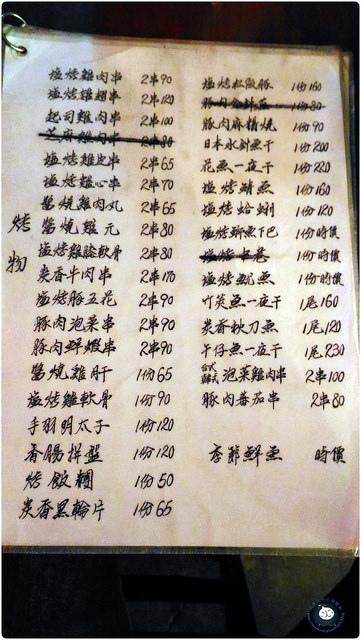 烤物
塩烤雞肉串 2串90
塩烤雞翅串 2串120
起司雞肉串 2串100
芝麻雞肉串 2串80
塩烤雞皮串 2串65
塩烤雞心串 2串70
醬燒雞肉丸 2串65
醬燒雞元 2串80
塩烤雞膝軟骨 2串80
炭香牛肉串 2串170
塩烤豚五花 2串90
豚肉泡菜串 2串90
豚肉鮮蝦串 2串90
醬燒雞肝 1份65
塩烤雞軟骨 1份90
手羽明太子 1份120
香腸拼盤 1份120
烤飯糰 1份50
炭香黑輪片 1份65
塩烤松阪豚 1份160
豚肉金針菇 1份80
豚肉麻糬燒 1份90
日本水針魚干 1份200
花魚一夜干 1份220
塩烤鯖魚 1份160
塩烤蛤蜊 1份120
塩烤鰤魚下巴 1份時價
塩烤中卷 1份時價
塩烤魷魚 1份時價
竹筴魚一夜干 1尾160
炭香秋刀魚 1尾120
午仔魚一夜干 1尾230
台式 韓式 泡菜雞肉串 2串100
豚肉番茄串 2串80
季節鮮魚 時價